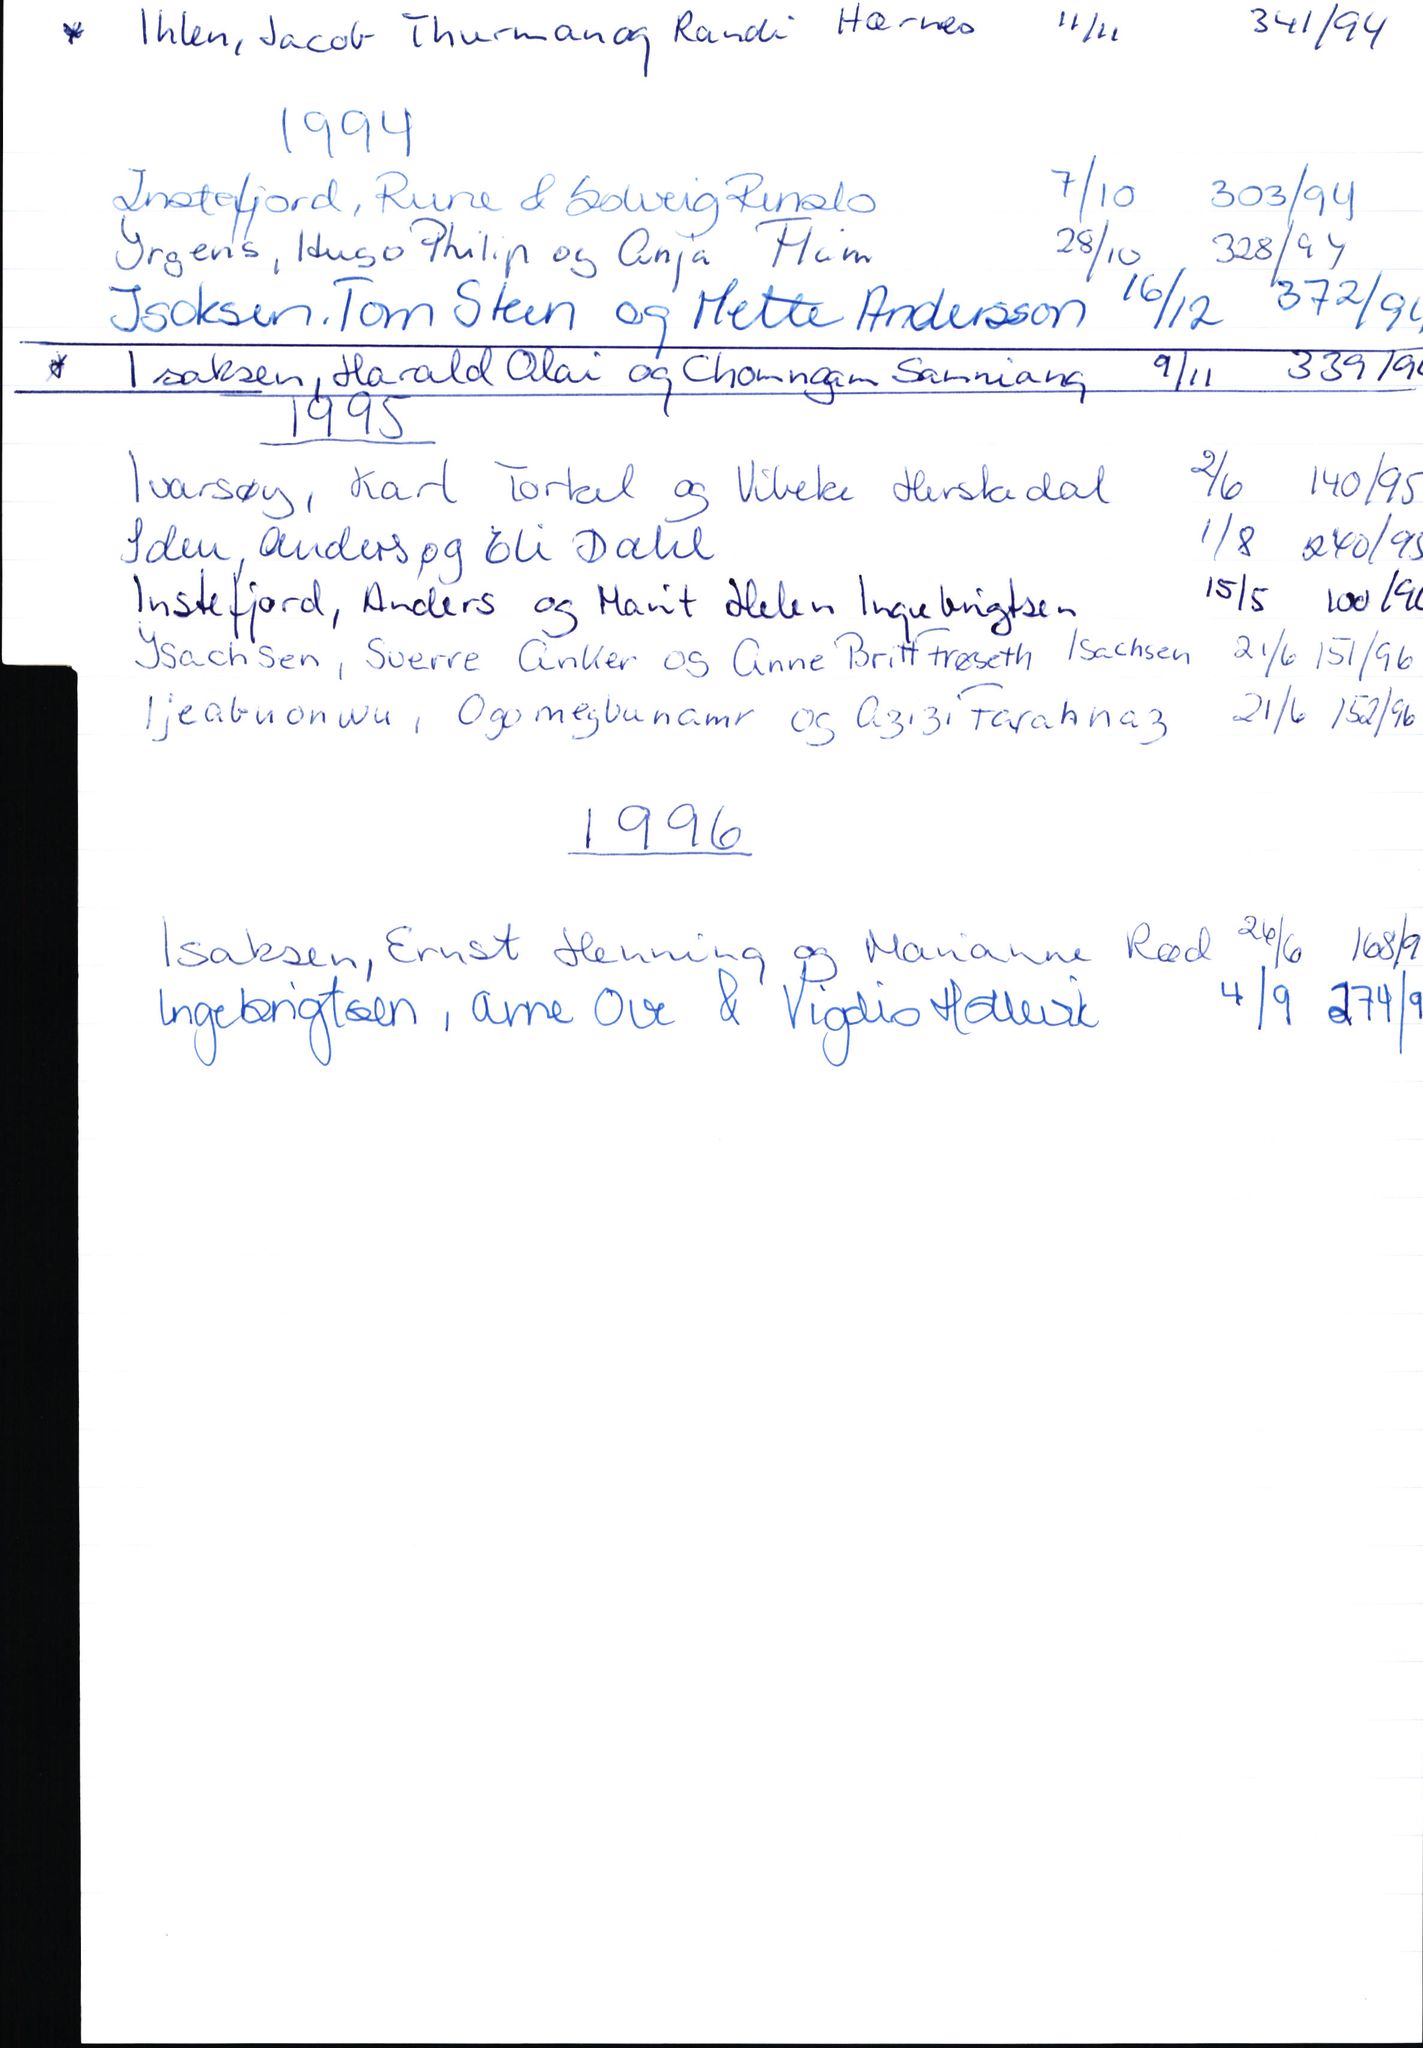 * Ihlen, Jacob Thurman og Randi Hærnes 11/11 341/94
1994
Instefjord, Rune & Solveig Renslo 7/10 303/94
Yrgens, Hugo Philip og Anja Flåm 28/10 328/94
Isaksen. Tom Steen og Mette Andersson 16/12 372/94
* Isaksen, Harald Olai og Chomngam Samniang 9/11 339/94
1995
Ivarsøy, Karl Torkel og Vibeke Herskedal 2/6 140/95
Iden, Anders og Eli Dahl 1/8 240/95
Instefjord, Anders og Marit Helen Ingebrigtsen 15/5 100/96
Ysachsen, Sverre Anker og Anne Britt Frøseth Isachsen 21/6 151/96
Ijeabuonwu, Ogomegbunamr og Azizi Farahnaz 21/6 152/96
1996
Isaksen, Ernst Henning og Marianne Rød 26/6 168/9
Ingebrigtsen, Arne Ove & Vigdis 4/9 274/9